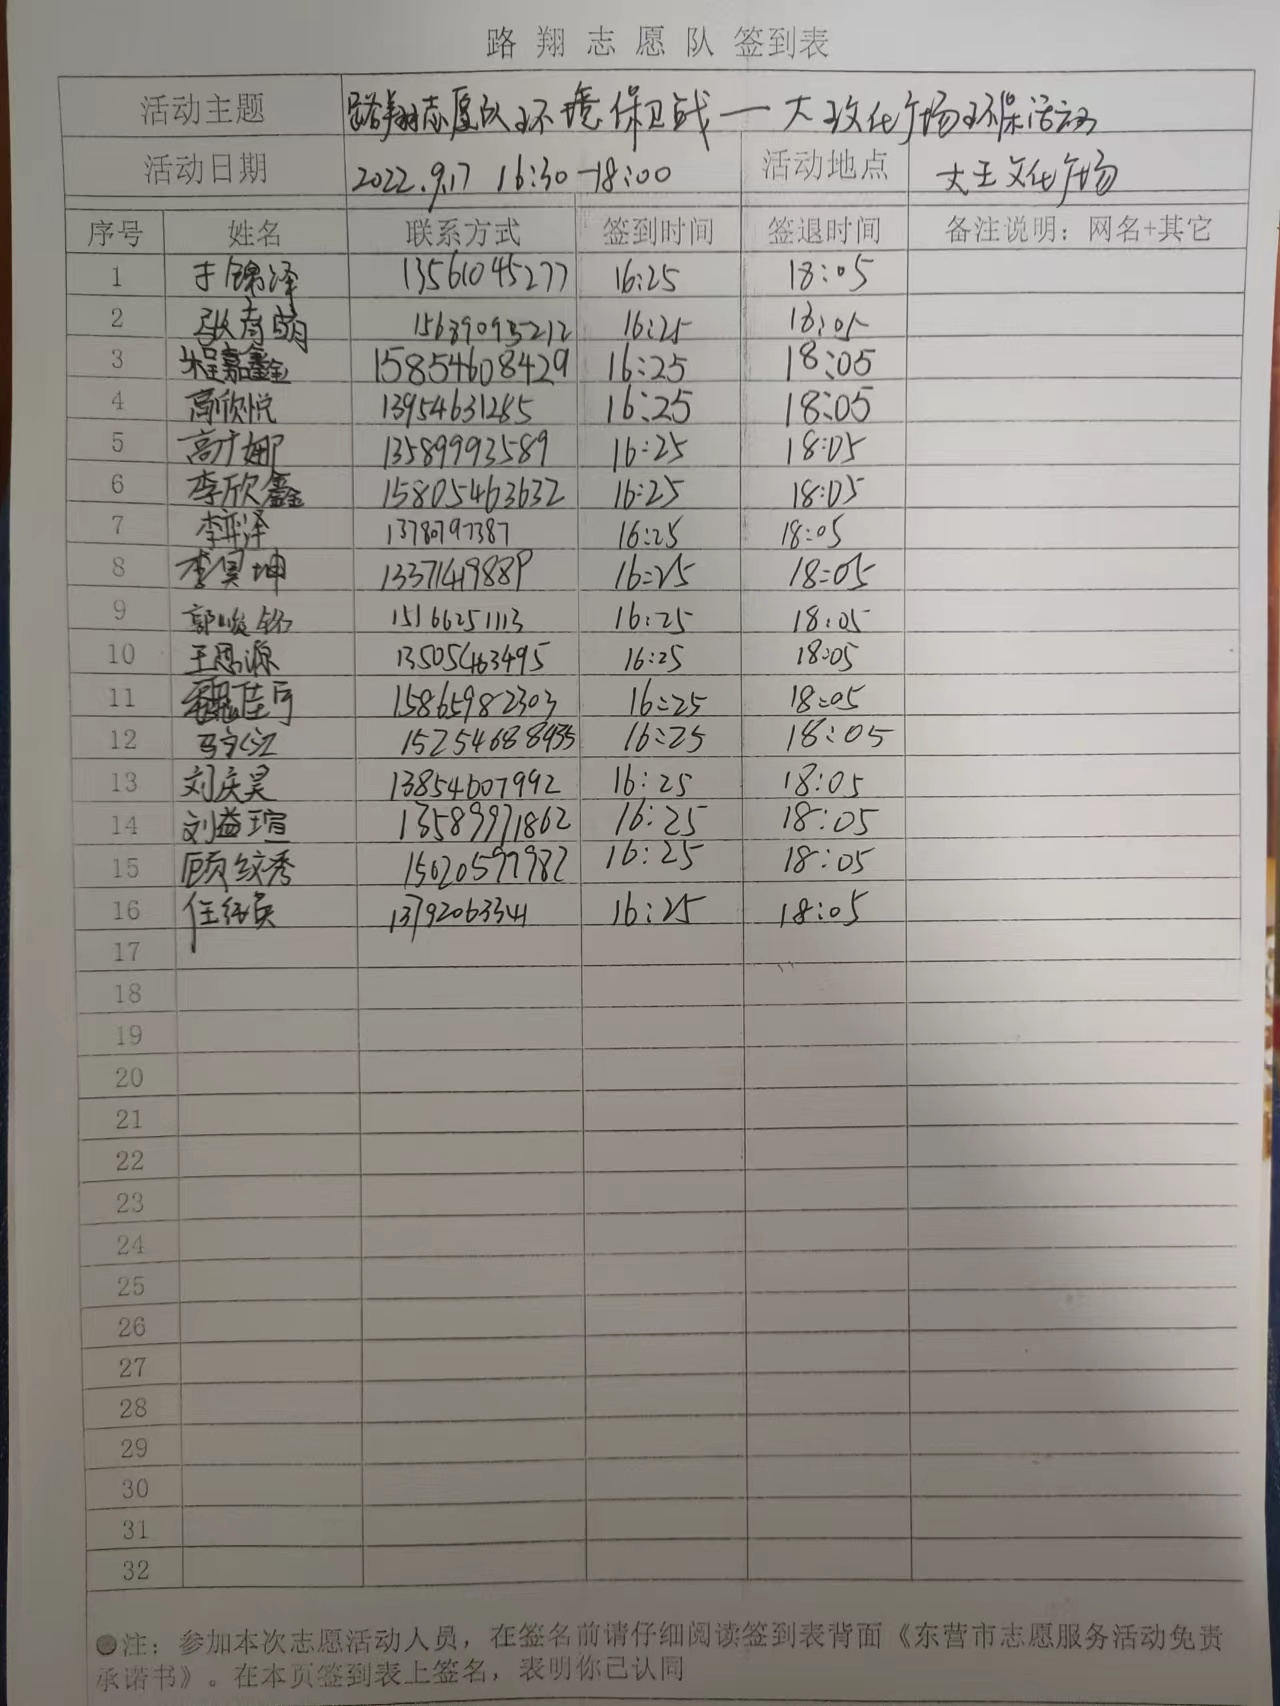 路翔志愿队签到表
活动主题 路翔志愿队环境保卫战一大王文化广场环保活动
活动日期 2022.9.17 16:30-18:00 活动地点 大王文化广场
序号 姓名 联系方式 签到时间 签退时间 备注说明：网名+其它
1 于锦泽 13561045277 16:25 18:05
2 16:25 18:05
3 程嘉鑫 15854608429 16:25 18:05
4 高欣悦 13954631285 16:25 18:05
5 13589993589 16:25 18:05
6 李欣鑫 15805463632 16:25 18:05
7 李泽 13780797387 16:25 18:05
8 李昊坤 13371419889 16:25 18:05
9 郭峻铭 15166251113 16:25 18:05
10 王思源 13505463495 16:25 18:05
11 魏佳 15865982303 16:25 18:05
12 马 15254688935 16:25 18:05
13 刘庆昊 13854607992 16:25 18:05
14 刘益瑄 13589971862 16:25 18:05
15 顾纹秀 15020597982 16:25 18:05
16 任 13792063341 16:25 18:05
17
18
19
20
21
22
23
24
25
26
27
28
29
30
31
32
●注：参加本次志愿活动人员，在签名前请仔细阅读签到表背面《东营市志愿服务活动免责
承诺书》。在本页签到表上签名，表明你已认同